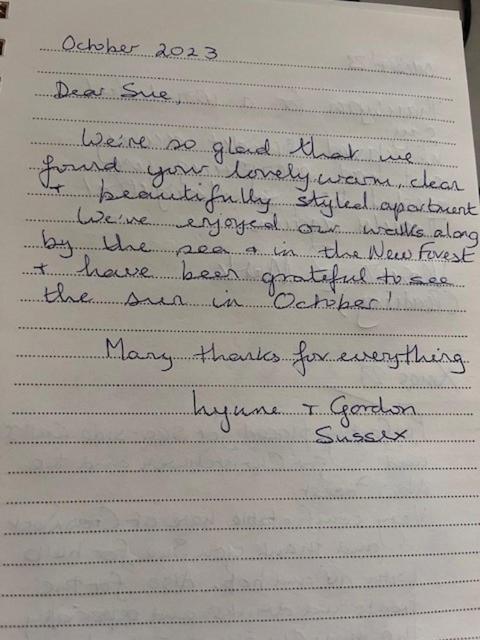 October 2023
Dear Sue,
We're so glad that we
found your lovely warm, clean
+ beautifully styled apartment
We've enjoyed our walks along
by the sea + in the New Forest
+ have been grateful to see
the sun in October!
Many thanks for everything
Lynne + Gordon
Sussex